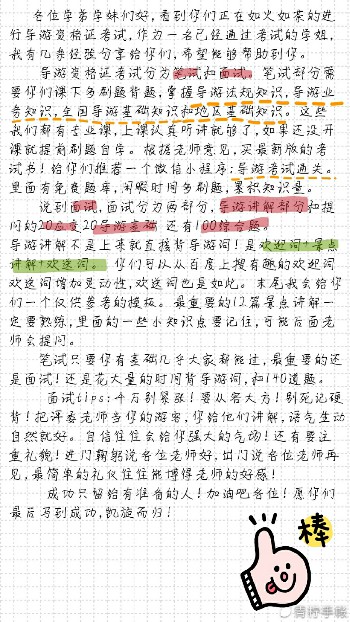 各位学弟学妹们好，看到你们正在如火如荼的进
行导游资格证考试，作为一名已经通过考试的学姐，
我有几条经验分享给你们，希望能够帮助到你。
导游资格证考试分为笔试和面试。笔试部分需
要你们课下多刷题背题，掌握导游法规知识，导游业
务知识，全国导游基础知识和地区基础知识。这些
我们都有专业课，上课认真听讲就够了，如果还没开
课就提前刷题自库。根据老师意见，买最新版的考
试书！给你们推荐一个微信小程序：导游考试通关。
里面有免费题库，闲暇时间多刷题，累积知识量。
说到面试，面试分为两部分，导游讲解部分和提
问的20应变20导游基础 还有100综合题。
导游讲解不是上来就直接背导游词！是欢迎词+景点
讲解+欢送词。你们可以从百度上搜有趣的欢迎词
欢送词增加灵动性，欢送词也是如此。末尾我会给你
们一个仅供参考的模板。最重要的12篇景点讲解一
定要熟练，里面的一些小知识点要记住，可能后面老
师会提问。
笔试只要你有基础几乎大家都能过，最重要的还
是面试！还是花大量的时间背导游词，和140道题。
面试tips：千万别紧张！要从容大方！别死记硬
背！把评委老师当你的游客，你给他们讲解，语气生动
自然就好。自信往往会给你强大的气场！还有要注
重礼貌！进门鞠躬说各位老师好，出门说各位老师再
见，最简单的礼仪往往能博得老师的好感！
成功只留给有准备的人！加油吧各位！愿你们
最后马到成功，凯旋而归！
棒
简柠手帐